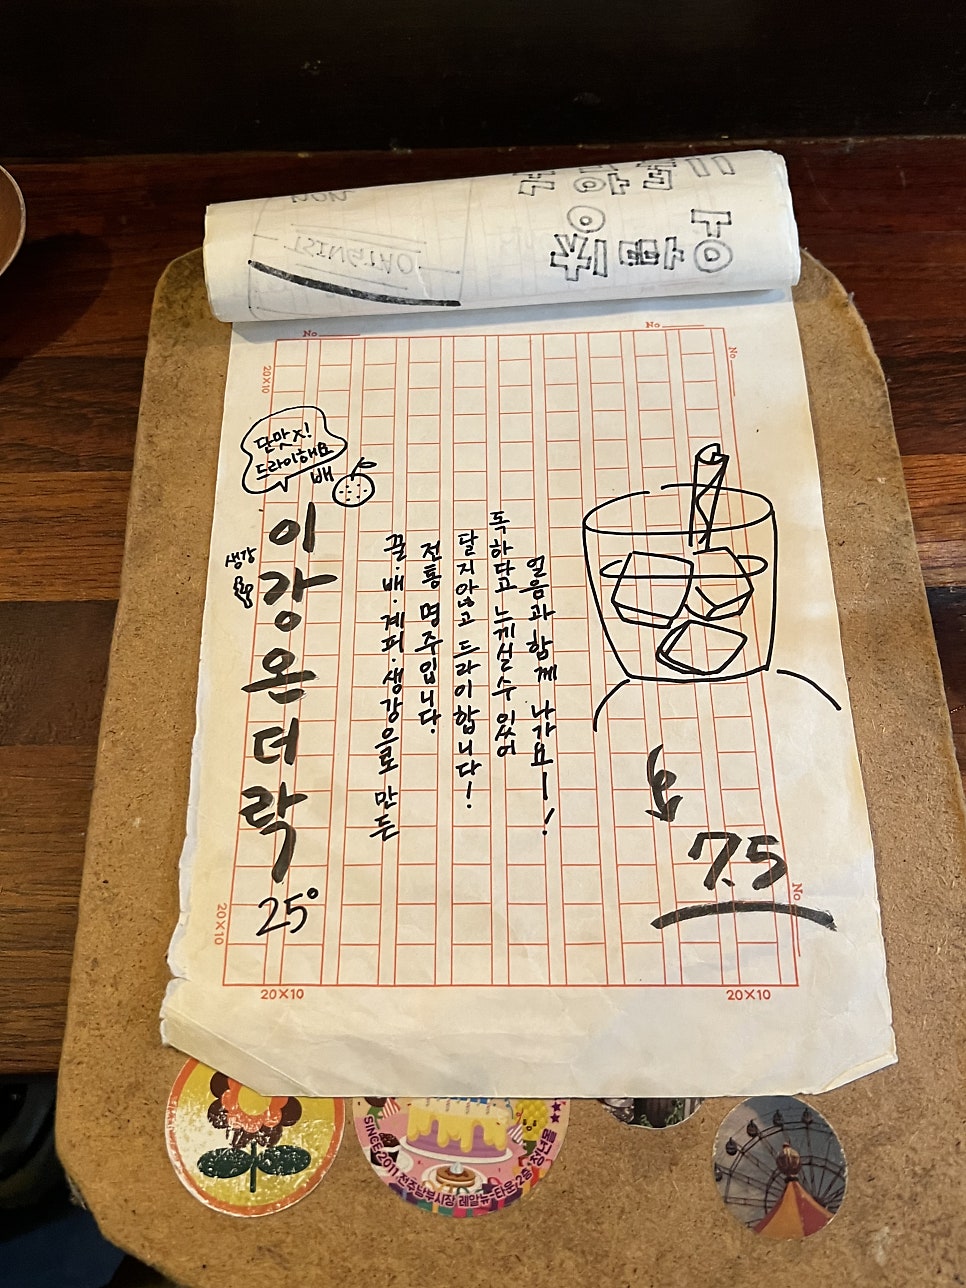 TSINGTAO
No
No
No
20X10
단맛X!
드라이해요
배
생강
이강온더락
25°
꿀·배·계피·생강으로 만든
전통 명주입니다.
달지않고 드라이합니다!
독하다고 느끼실수 있어
얼음과 함께 나가요ㅡ!
7.5
No
20X10
20X10
20X10
SINCE2011 전주남부시장 레알뉴-타운 2층 청년몰